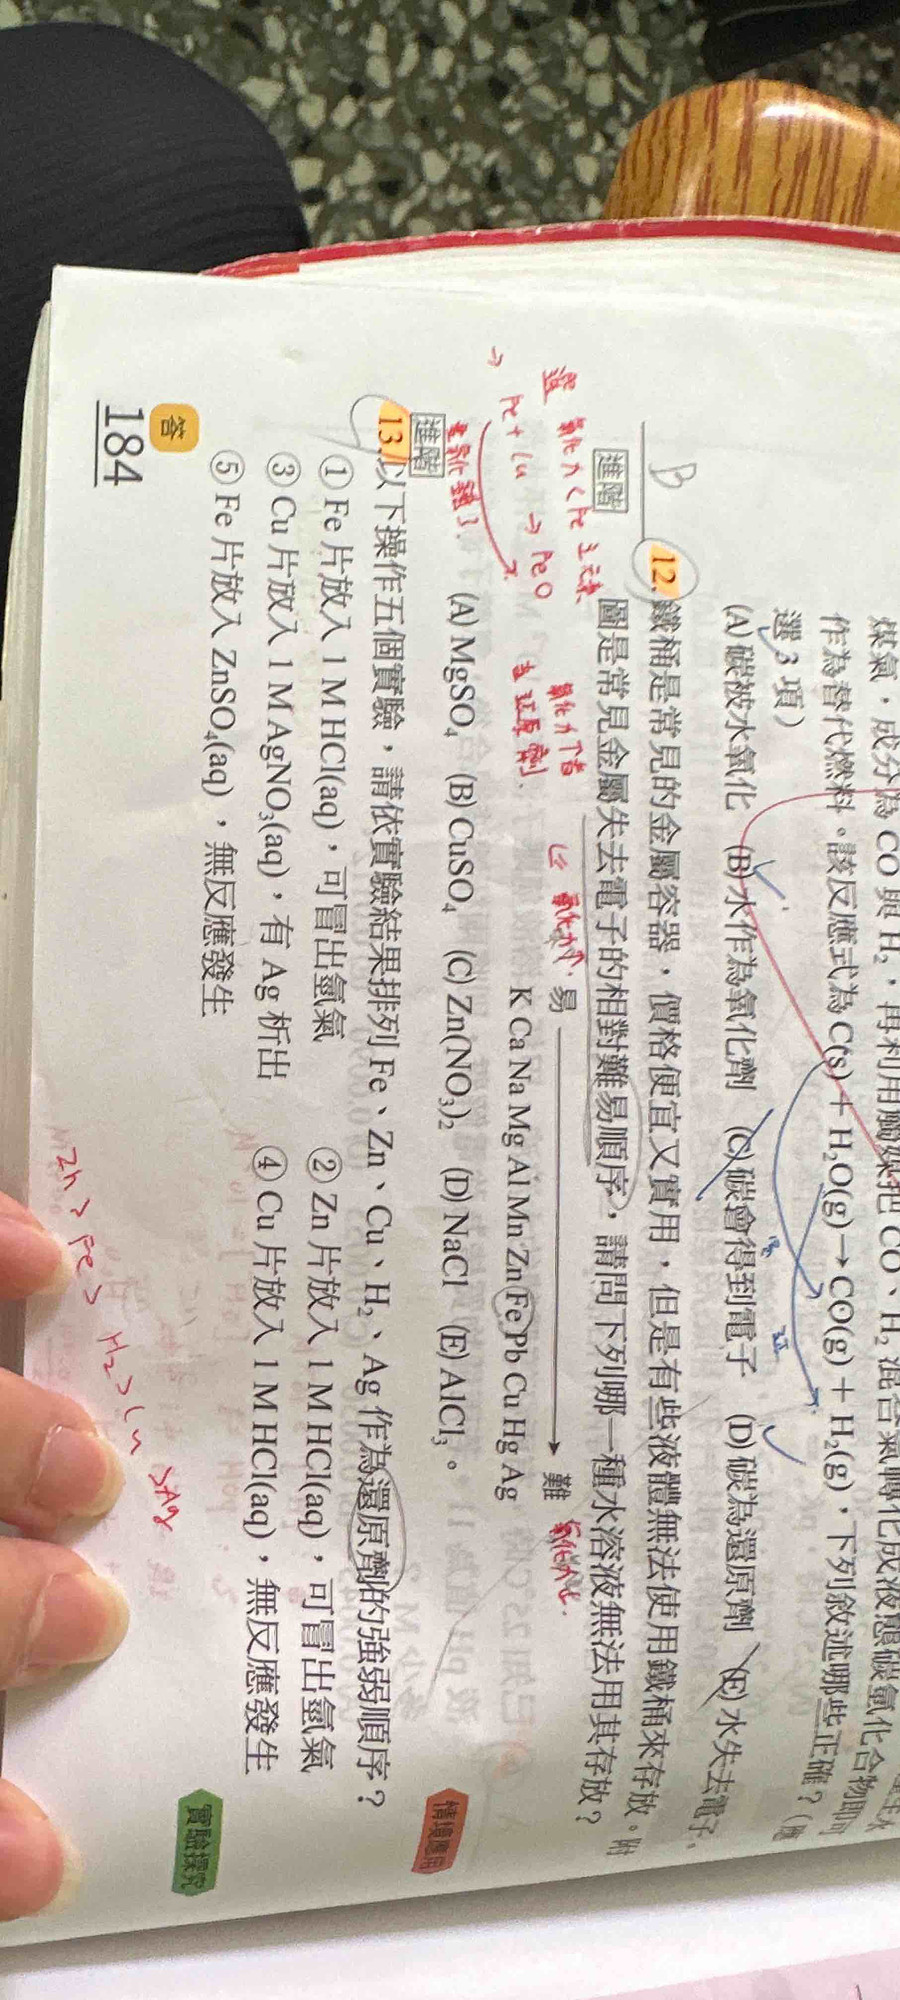 煤氣,成分為 CO 與 H₂,再利用觸媒把 CO、H₂ 混合氣轉化成液態碳氫化合物即可
作為替代燃料。該反應式為 C(s) + H₂O(g) → CO(g) + H₂(g),下列敘述哪些正確?(應
選 3 項)
(A) 碳被水氧化 (B) 水作為氧化劑 (C) 碳會得到電子 (D) 碳為還原劑 (E) 水失去電子。
B
12. 鐵桶是常見的金屬容器,價格便宜又實用,但是有些液體無法使用鐵桶來存放。附
進階 圖是常見金屬失去電子的相對難易順序,請問下列哪一種水溶液無法用其存放?
選 氧化力<Fe 之元素
易 難
K Ca Na Mg Al Mn Zn Fe Pb Cu Hg Ag
當還原劑.
(A) MgSO₄ (B) CuSO₄ (C) Zn(NO₃)₂ (D) NaCl (E) AlCl₃。
情境應用
進階
13. 以下操作五個實驗,請依實驗結果排列 Fe、Zn、Cu、H₂、Ag 作為還原劑的強弱順序?
① Fe 片放入 1 M HCl(aq),可冒出氫氣 ② Zn 片放入 1 M HCl(aq),可冒出氫氣
③ Cu 片放入 1 M AgNO₃(aq),有 Ag 析出 ④ Cu 片放入 1 M HCl(aq),無反應發生
⑤ Fe 片放入 ZnSO₄(aq),無反應發生
實驗探究
答
Zn > Fe > H₂ > Cu > Ag
184